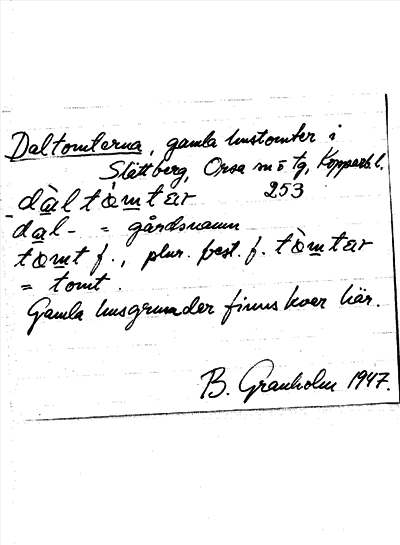 Daltomterna, gamla hustomter i
Slättberg, Orsa sn o tg, Kopparb. l.
dàltòmtär 253
dal- = gårdsnamn
tòmt f., plur. best. f. tòmtär
= tomt.
Gamla husgrunder finns kvar här.
B. Granholm 1947.